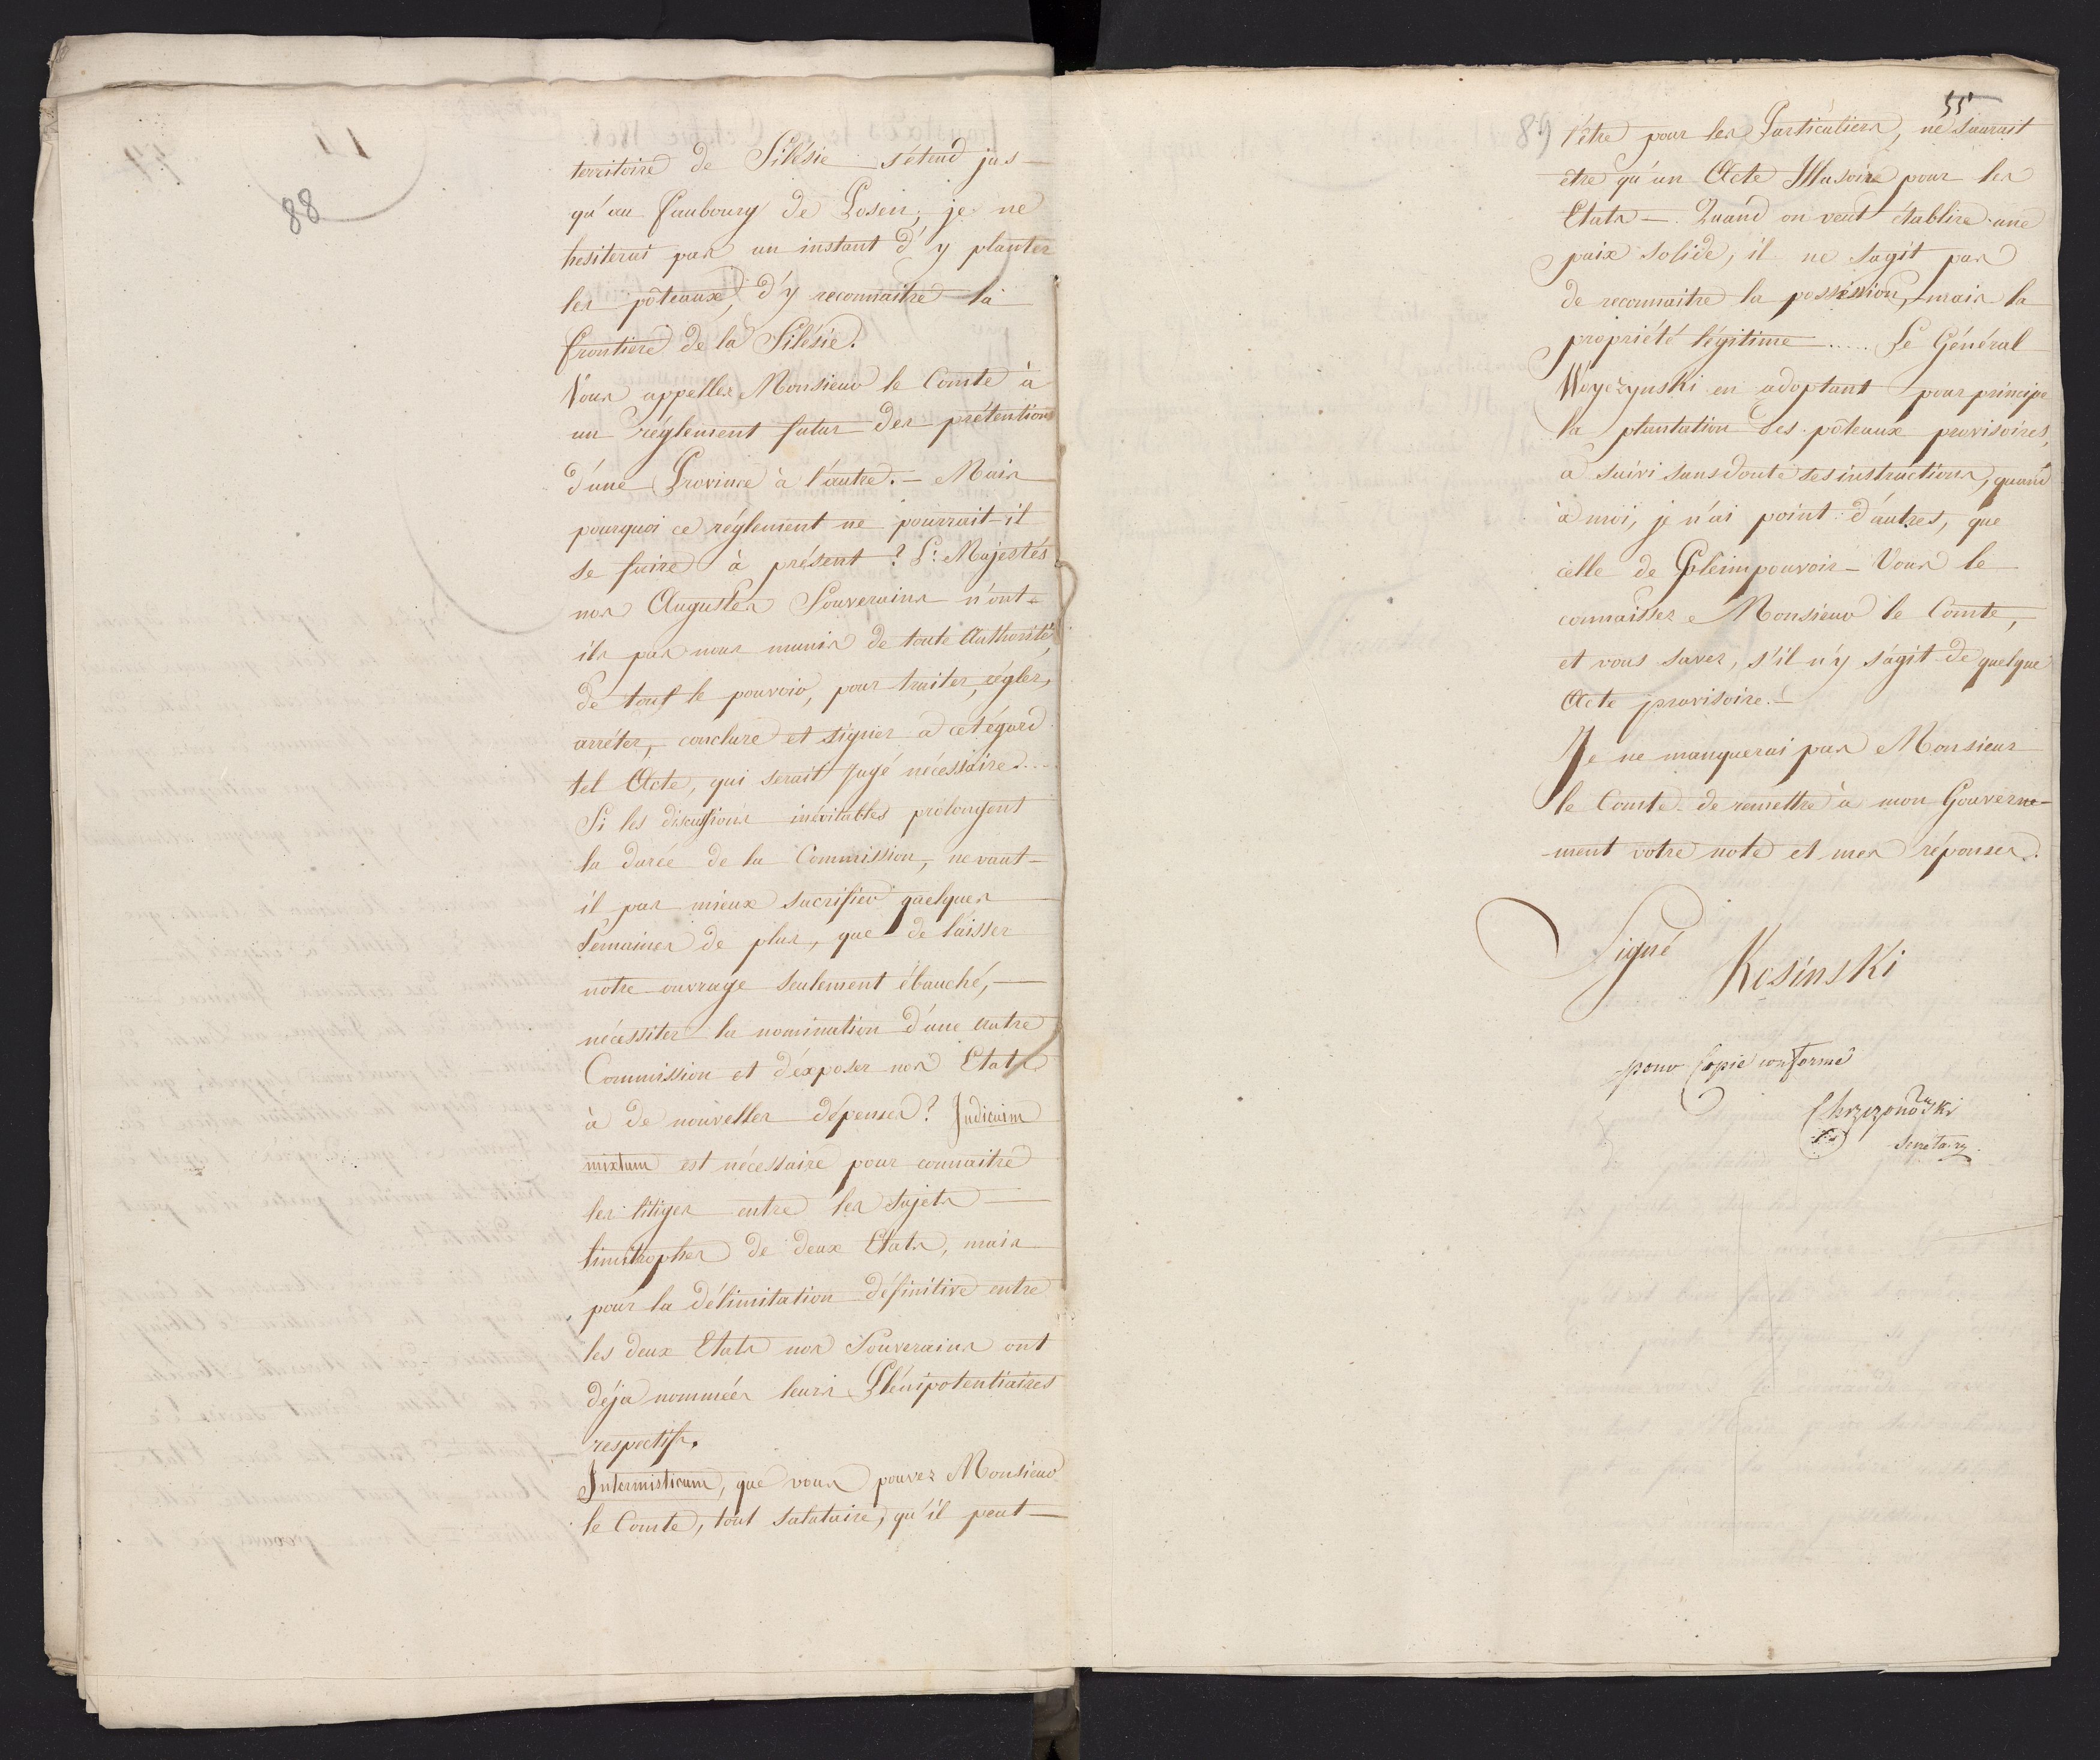 88
territoire de Silésie s'étend jus-
qu'au Faubourg de Posen, je ne
hesiterai pas un instant d'y planter
les pôteaux, d'y reconnaitre la
frontiere de la Silésie.
Vous appellez Monsieur le Comte à
un réglement futur des prétentions
d'une Province à l'autre. – Mais
pourquoi ce réglement ne pourrait-il
se faire à présent? L: Majestés
nos Augustes Souverains n'ont-
ils pas nous munis de toute Authorité,
de tout le pouvoir, pour traiter, régler,
arréter, conclure et signer à cet égard
tel Acte, qui serait jugé nécessaire....
Si les discussions inévitables prolongent
la durée de la Commission, ne vaut-
il pas mieux sacrifier quelques
semaines de plus, que de laisser
notre ouvrage seulement ébauché, –
nécessiter la nomination d'une autre
Commission et d'éxposer nos Etats
à de nouvelles dépenses? Judicium
mixtum est nécessaire pour connaitre
les litiges entre les sujets –
limitrophes de deux Etats, mais
pour la délimitation définitive entre
les deux Etats nos Souverains ont
déja nommées leurs Plénipotentiaires
respectifs.
Intermisticum, que vous pouvez Monsieur
le Comte, tout salutaire, qu'il peut –
89
55
l'être pour les Particuliers, ne saurait
être qu'un Acte Illusoire pour les
Etats – Quand on veut établire une
paix solide, il ne sagit pas
de reconnaitre la possession, mais la
propriété légitime ..... Le Général
Woyczynski en adoptant pour principe
la plantation des pôteaux provisoires,
a suivi sans doute ses instructions, quand
à moi, je n'ai point d'autres, que
celle de Pleinpouvoir – Vous le
connaissez Monsieur le Comte,
et vous savez, s'il n'y s'agit de quelque
Acte provisoire. –
Je ne manquerai pas Monsieur
le Comte de remettre à mon Gouverne-
ment votre note et mes réponses.
Signé
Kosinski
pour Copie conforme
Chrzzonowski
Secretarz.